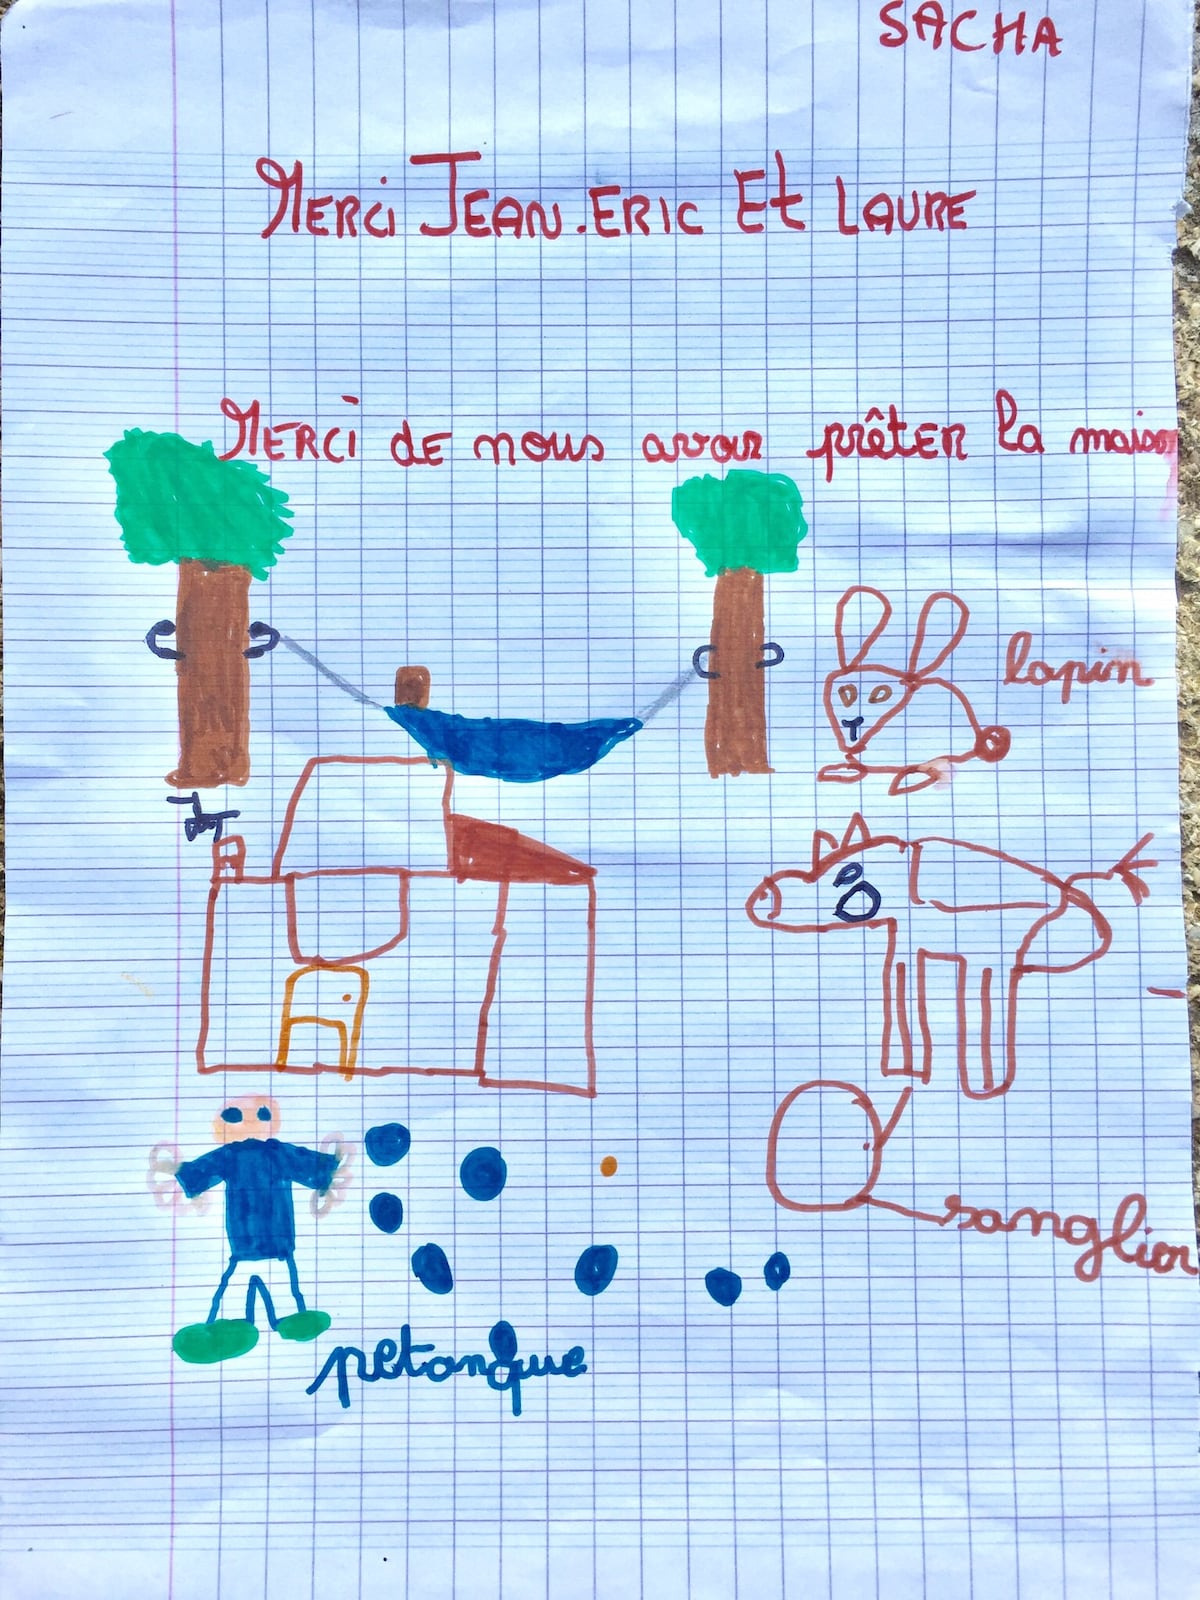 SACHA
MERCi JEAN.ERIC Et LAURE
MERCi de nous avoir prêter la maison
lapin
sanglier
petanque